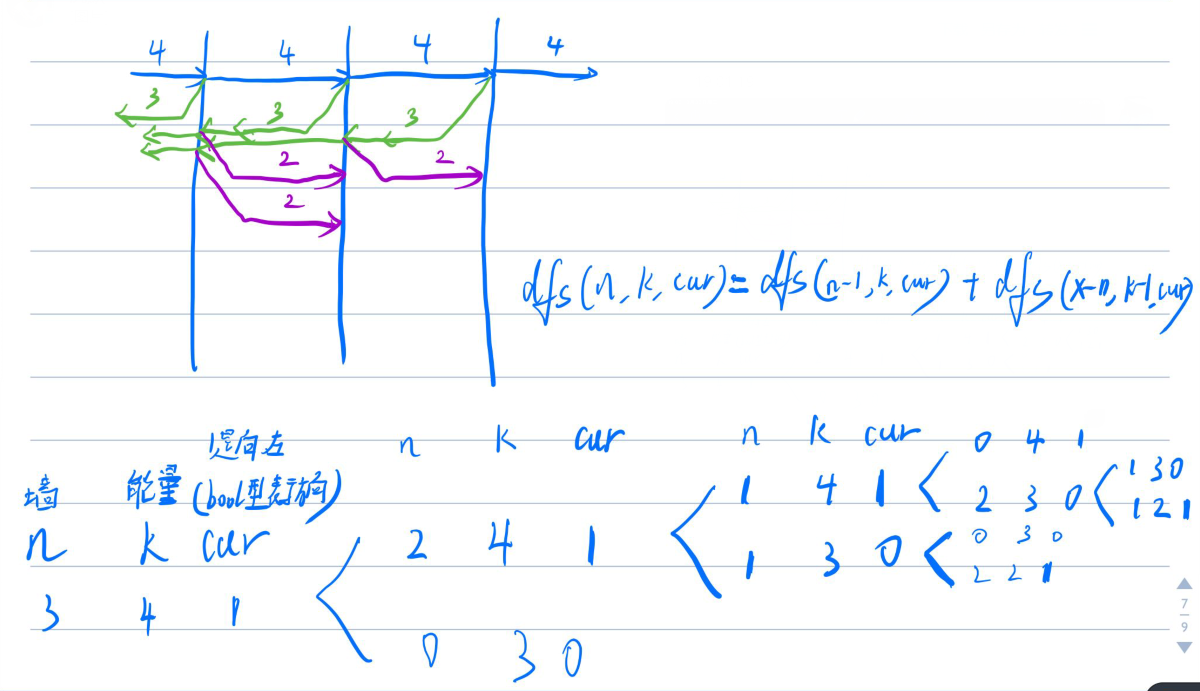 4 4 4 4
3 3 3
2 2
2
dfs(n, k, cur) = dfs(n-1, k, cur) + dfs(x-n, k-1, cur)
1是向左 n k cur n k cur 0 4 1
墙 能量 (bool型表示方向) 1 4 1 2 3 0 1 3 0
1 2 1
n k cur 2 4 1 1 3 0 0 3 0
2 2 1
3 4 1 0 3 0
7
9